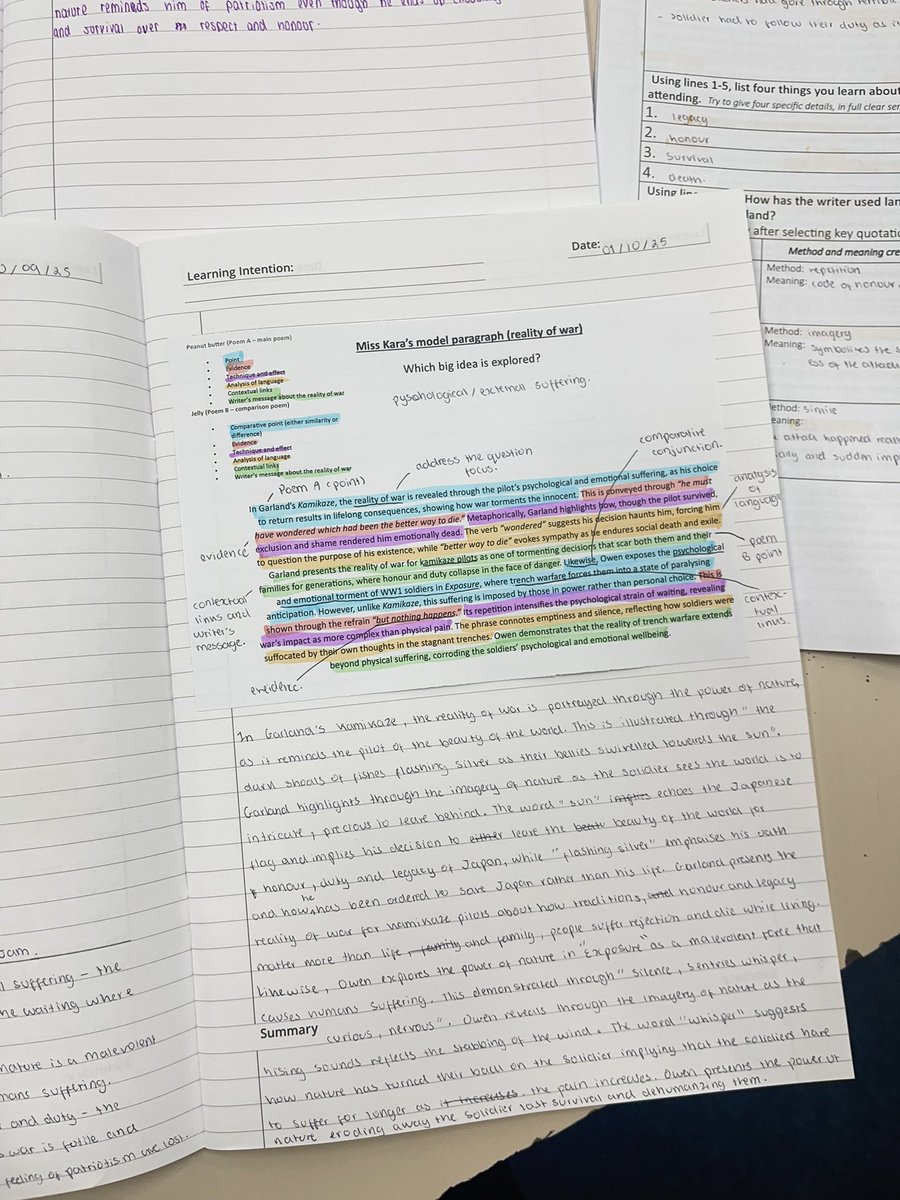 nature reminds him of patriotism even though he ends up
and survival over respect and honour.
- solidier had to follow their duty as
Using lines 1-5, list four things you learn about
attending. Try to give four specific details, in full clear
1. legacy
2. honour
3. survival
4. death.
How has the writer used
land?
after selecting key
Method and meaning
Method: repetition
Meaning: code of honour
Method: imagery
Meaning: symbolises the
ess of the
Method: simile
attack happened
and sudden
09/25
Learning Intention:
Date: 01/10/25
Peanut butter (Poem A – main poem)
• Point
• Evidence
• Technique and effect
• Analysis of language
• Contextual links
• Writer's message about the reality of war
Jelly (Poem B – comparison poem)
• Comparative point (either similarity or
difference)
• Evidence
• Technique and effect
• Analysis of language
• Contextual links
• Writer's message about the reality of war
Miss Kara's model paragraph (reality of war)
Which big idea is explored?
pyschological / external suffering.
Poem A (point)
address the question
focus.
comparative
conjunction.
analysis
of
language
evidence
poem
B point
contextual
links and
writer's
message.
contex-
tual
links.
evidence.
In Garland's Kamikaze, the reality of war is revealed through the pilot's psychological and emotional suffering, as his choice
to return results in lifelong consequences, showing how war torments the innocent. This is conveyed through "he must
have wondered which had been the better way to die." Metaphorically, Garland highlights how, though the pilot survived,
exclusion and shame rendered him emotionally dead. The verb "wondered" suggests his decision haunts him, forcing him
to question the purpose of his existence, while "better way to die" evokes sympathy as he endures social death and exile.
Garland presents the reality of war for kamikaze pilots as one of tormenting decisions that scar both them and their
families for generations, where honour and duty collapse in the face of danger. Likewise, Owen exposes the psychological
and emotional torment of WW1 soldiers in Exposure, where trench warfare forces them into a state of paralysing
anticipation. However, unlike Kamikaze, this suffering is imposed by those in power rather than personal choice. This is
shown through the refrain "but nothing happens." Its repetition intensifies the psychological strain of waiting, revealing
war's impact as more complex than physical pain. The phrase connotes emptiness and silence, reflecting how soldiers were
suffocated by their own thoughts in the stagnant trenches. Owen demonstrates that the reality of trench warfare extends
beyond physical suffering, corroding the soldiers' psychological and emotional wellbeing.
In Garland's Kamikaze, the reality of war is portrayed through the power of nature,
as it reminds the pilot of the beauty of the world. This is illustrated through "the
dark shoals of fishes flashing silver as their bellies swivelled towards the sun".
Garland highlights through the imagery of nature as the solidier sees the world is to
intricate, precious to leave behind. The word "sun" implies echoes the Japanese
flag and implies his decision to either leave the beau beauty of the world for
honour, duty and legacy of Japan, while "flashing silver" emphaises his oath
and how he has been ordered to save Japan rather than his life. Garland presents the
reality of war for kamikaze pilots about how traditions, and honour and legacy
matter more than life, family and family, people suffer rejection and die while living.
Likewise, Owen explores the power of nature in "Exposure" as a malevolent force that
causes humans suffering. This demonstrated through "silence, sentries whisper,
Summary
curious, nervous". Owen reveals through the imagery of nature as the
hising sounds reflects the stabbing of the wind. The word "whisper" suggests
how nature has turned their back on the solidier implying that the soldiers have
to suffer for longer as it increases. the pain increases. Owen presents the power of
nature eroding away the solidier last survival and dehumanizing them.
Jam.
suffering - the
waiting where
nature is a malevolent
suffering.
and duty - the
war is futile and
feeling of patriotism are lost.